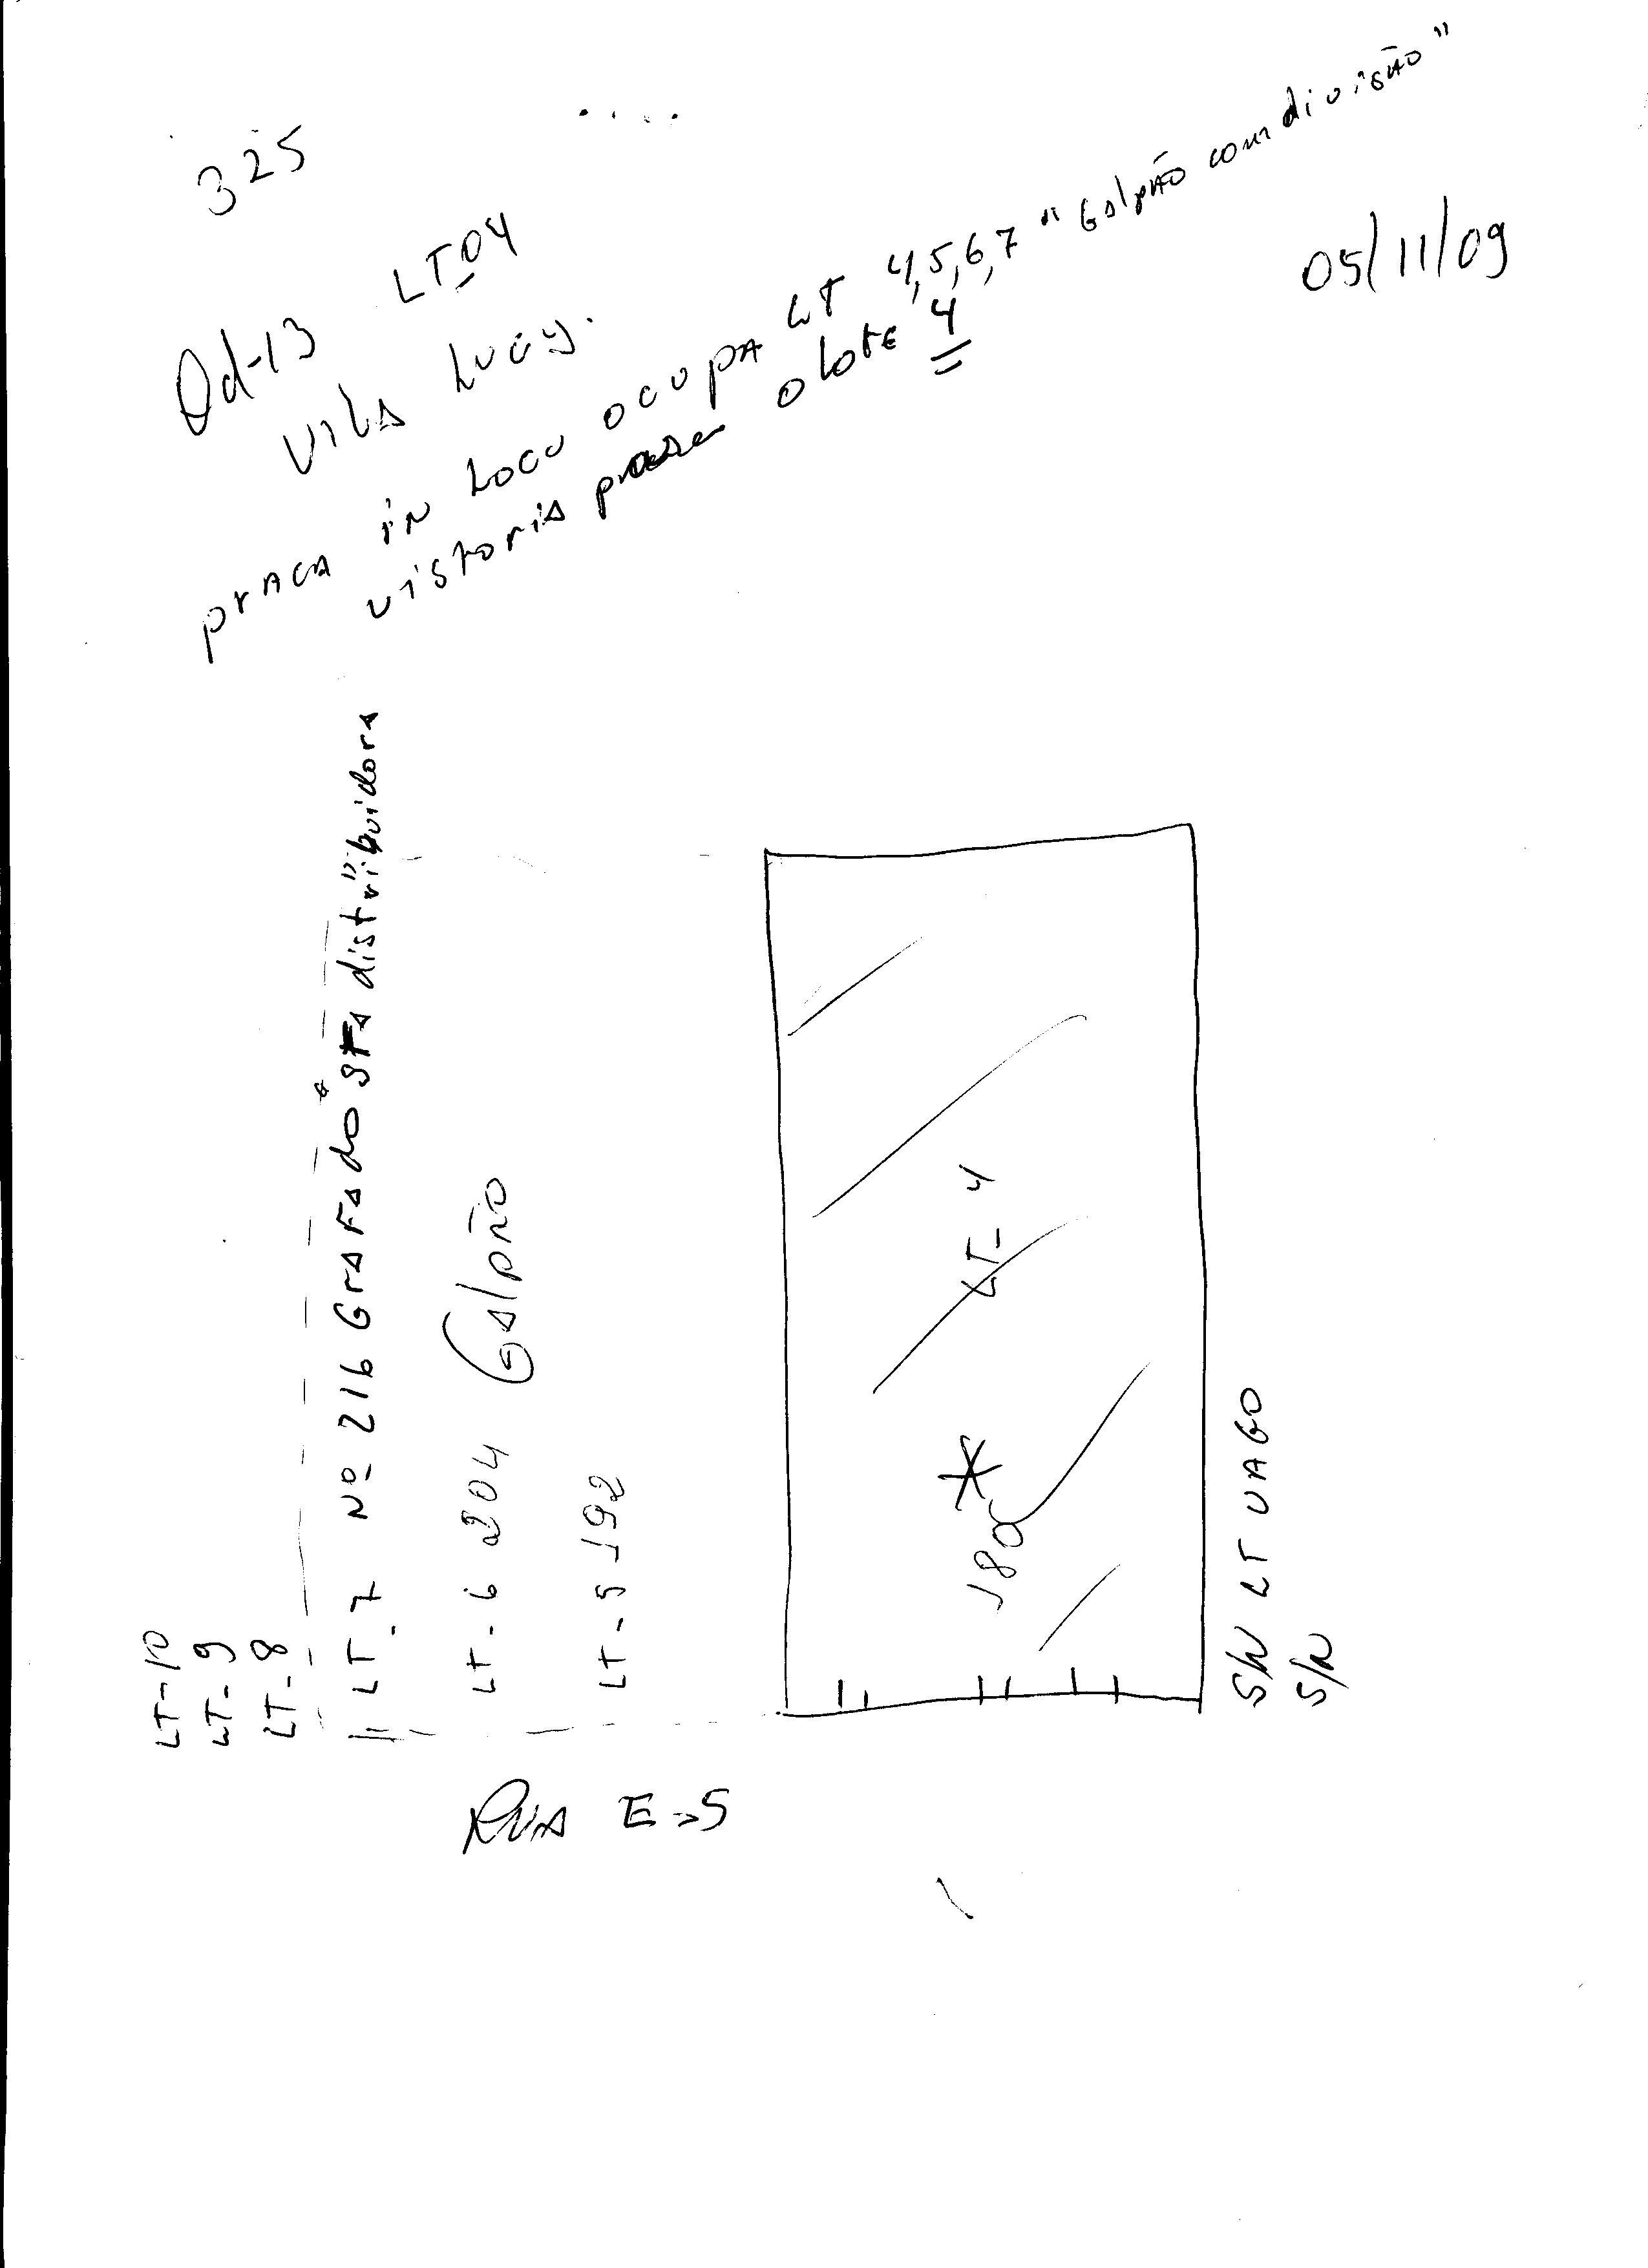 325
Qd-13 LT-04
Vila Lucy.
praca in Loco ocupa LT 4,5,6,7 "Galpão com divisão"
vistoria o lote 4
05/11/09
LT-10
LT-9
LT-8
LT-7 Nº 216 Grafado "SFA distribuidora"
LT-6 204 Galpão
LT-5 192
LT-4
180
S/N LT VAGO
S/N
RUA E-5